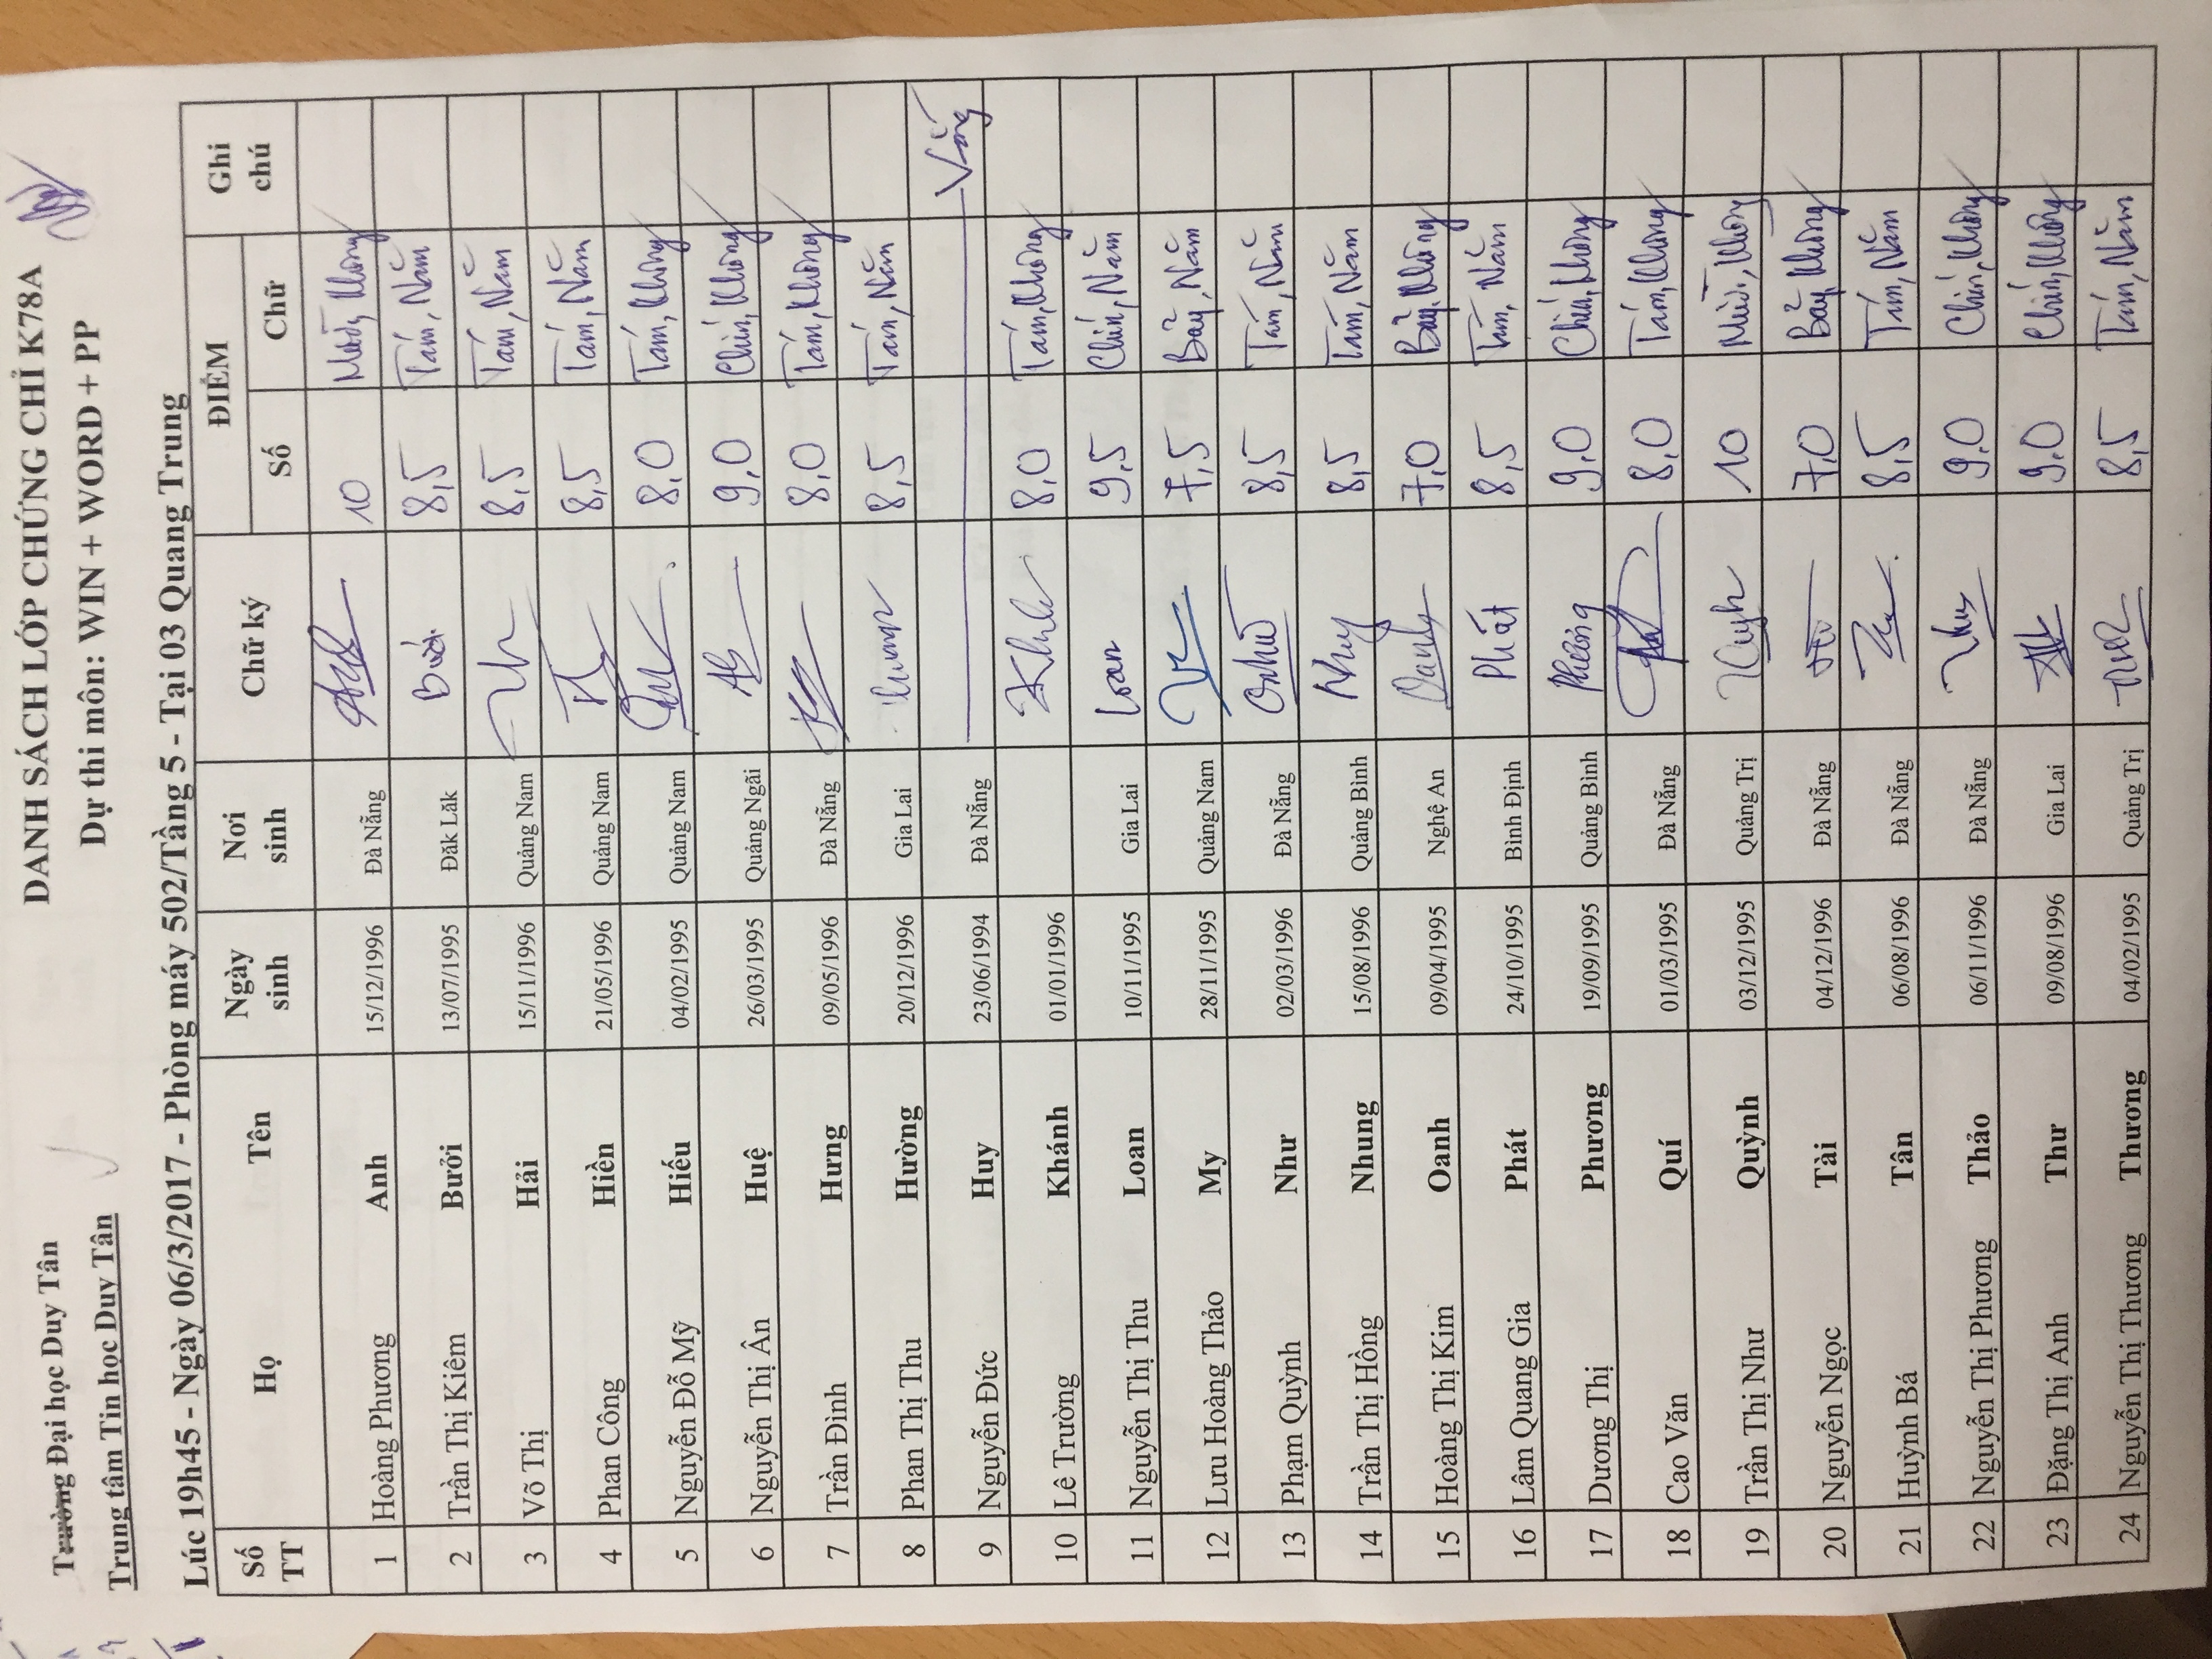 Trường Đại học Duy Tân
Trung tâm Tin học Duy Tân
DANH SÁCH LỚP CHỨNG CHỈ K78A
Dự thi môn: WIN + WORD + PP
Lúc 19h45 - Ngày 06/3/2017 - Phòng máy 502/Tầng 5 - Tại 03 Quang Trung
Số TT Họ Tên Ngày sinh Nơi sinh Chữ ký ĐIỂM Số Chữ Ghi chú
1 Hoàng Phương Anh 15/12/1996 Đà Nẵng 10 Mười, Không
2 Trần Thị Kiêm Bưởi 13/07/1995 Đăk Lăk Bưởi 8,5 Tám, Năm
3 Võ Thị Hải 15/11/1996 Quảng Nam 8,5 Tám, Năm
4 Phan Công Hiền 21/05/1996 Quảng Nam 8,5 Tám, Năm
5 Nguyễn Đỗ Mỹ Hiếu 04/02/1995 Quảng Nam 8,0 Tám, Không
6 Nguyễn Thị Ân Huệ 26/03/1995 Quảng Ngãi 9,0 Chín, Không
7 Trần Đình Hưng 09/05/1996 Đà Nẵng 8,0 Tám, Không
8 Phan Thị Thu Hường 20/12/1996 Gia Lai 8,5 Tám, Năm
9 Nguyễn Đức Huy 23/06/1994 Đà Nẵng Vắng
10 Lê Trường Khánh 01/01/1996 8,0 Tám, Không
11 Nguyễn Thị Thu Loan 10/11/1995 Gia Lai Loan 9,5 Chín, Năm
12 Lưu Hoàng Thảo My 28/11/1995 Quảng Nam 7,5 Bảy, Năm
13 Phạm Quỳnh Như 02/03/1996 Đà Nẵng 8,5 Tám, Năm
14 Trần Thị Hồng Nhung 15/08/1996 Quảng Bình Nhung 8,5 Tám, Năm
15 Hoàng Thị Kim Oanh 09/04/1995 Nghệ An Oanh 7,0 Bảy, Không
16 Lâm Quang Gia Phát 24/10/1995 Bình Định Phát 8,5 Tám, Năm
17 Dương Thị Phương 19/09/1995 Quảng Bình Phương 9,0 Chín, Không
18 Cao Văn Quí 01/03/1995 Đà Nẵng 8,0 Tám, Không
19 Trần Thị Như Quỳnh 03/12/1995 Quảng Trị 10 Mười, Không
20 Nguyễn Ngọc Tài 04/12/1996 Đà Nẵng 7,0 Bảy, Không
21 Huỳnh Bá Tân 06/08/1996 Đà Nẵng 8,5 Tám, Năm
22 Nguyễn Thị Phương Thảo 06/11/1996 Đà Nẵng 9,0 Chín, Không
23 Đặng Thị Anh Thư 09/08/1996 Gia Lai 9,0 Chín, Không
24 Nguyễn Thị Thương Thương 04/02/1995 Quảng Trị 8,5 Tám, Năm